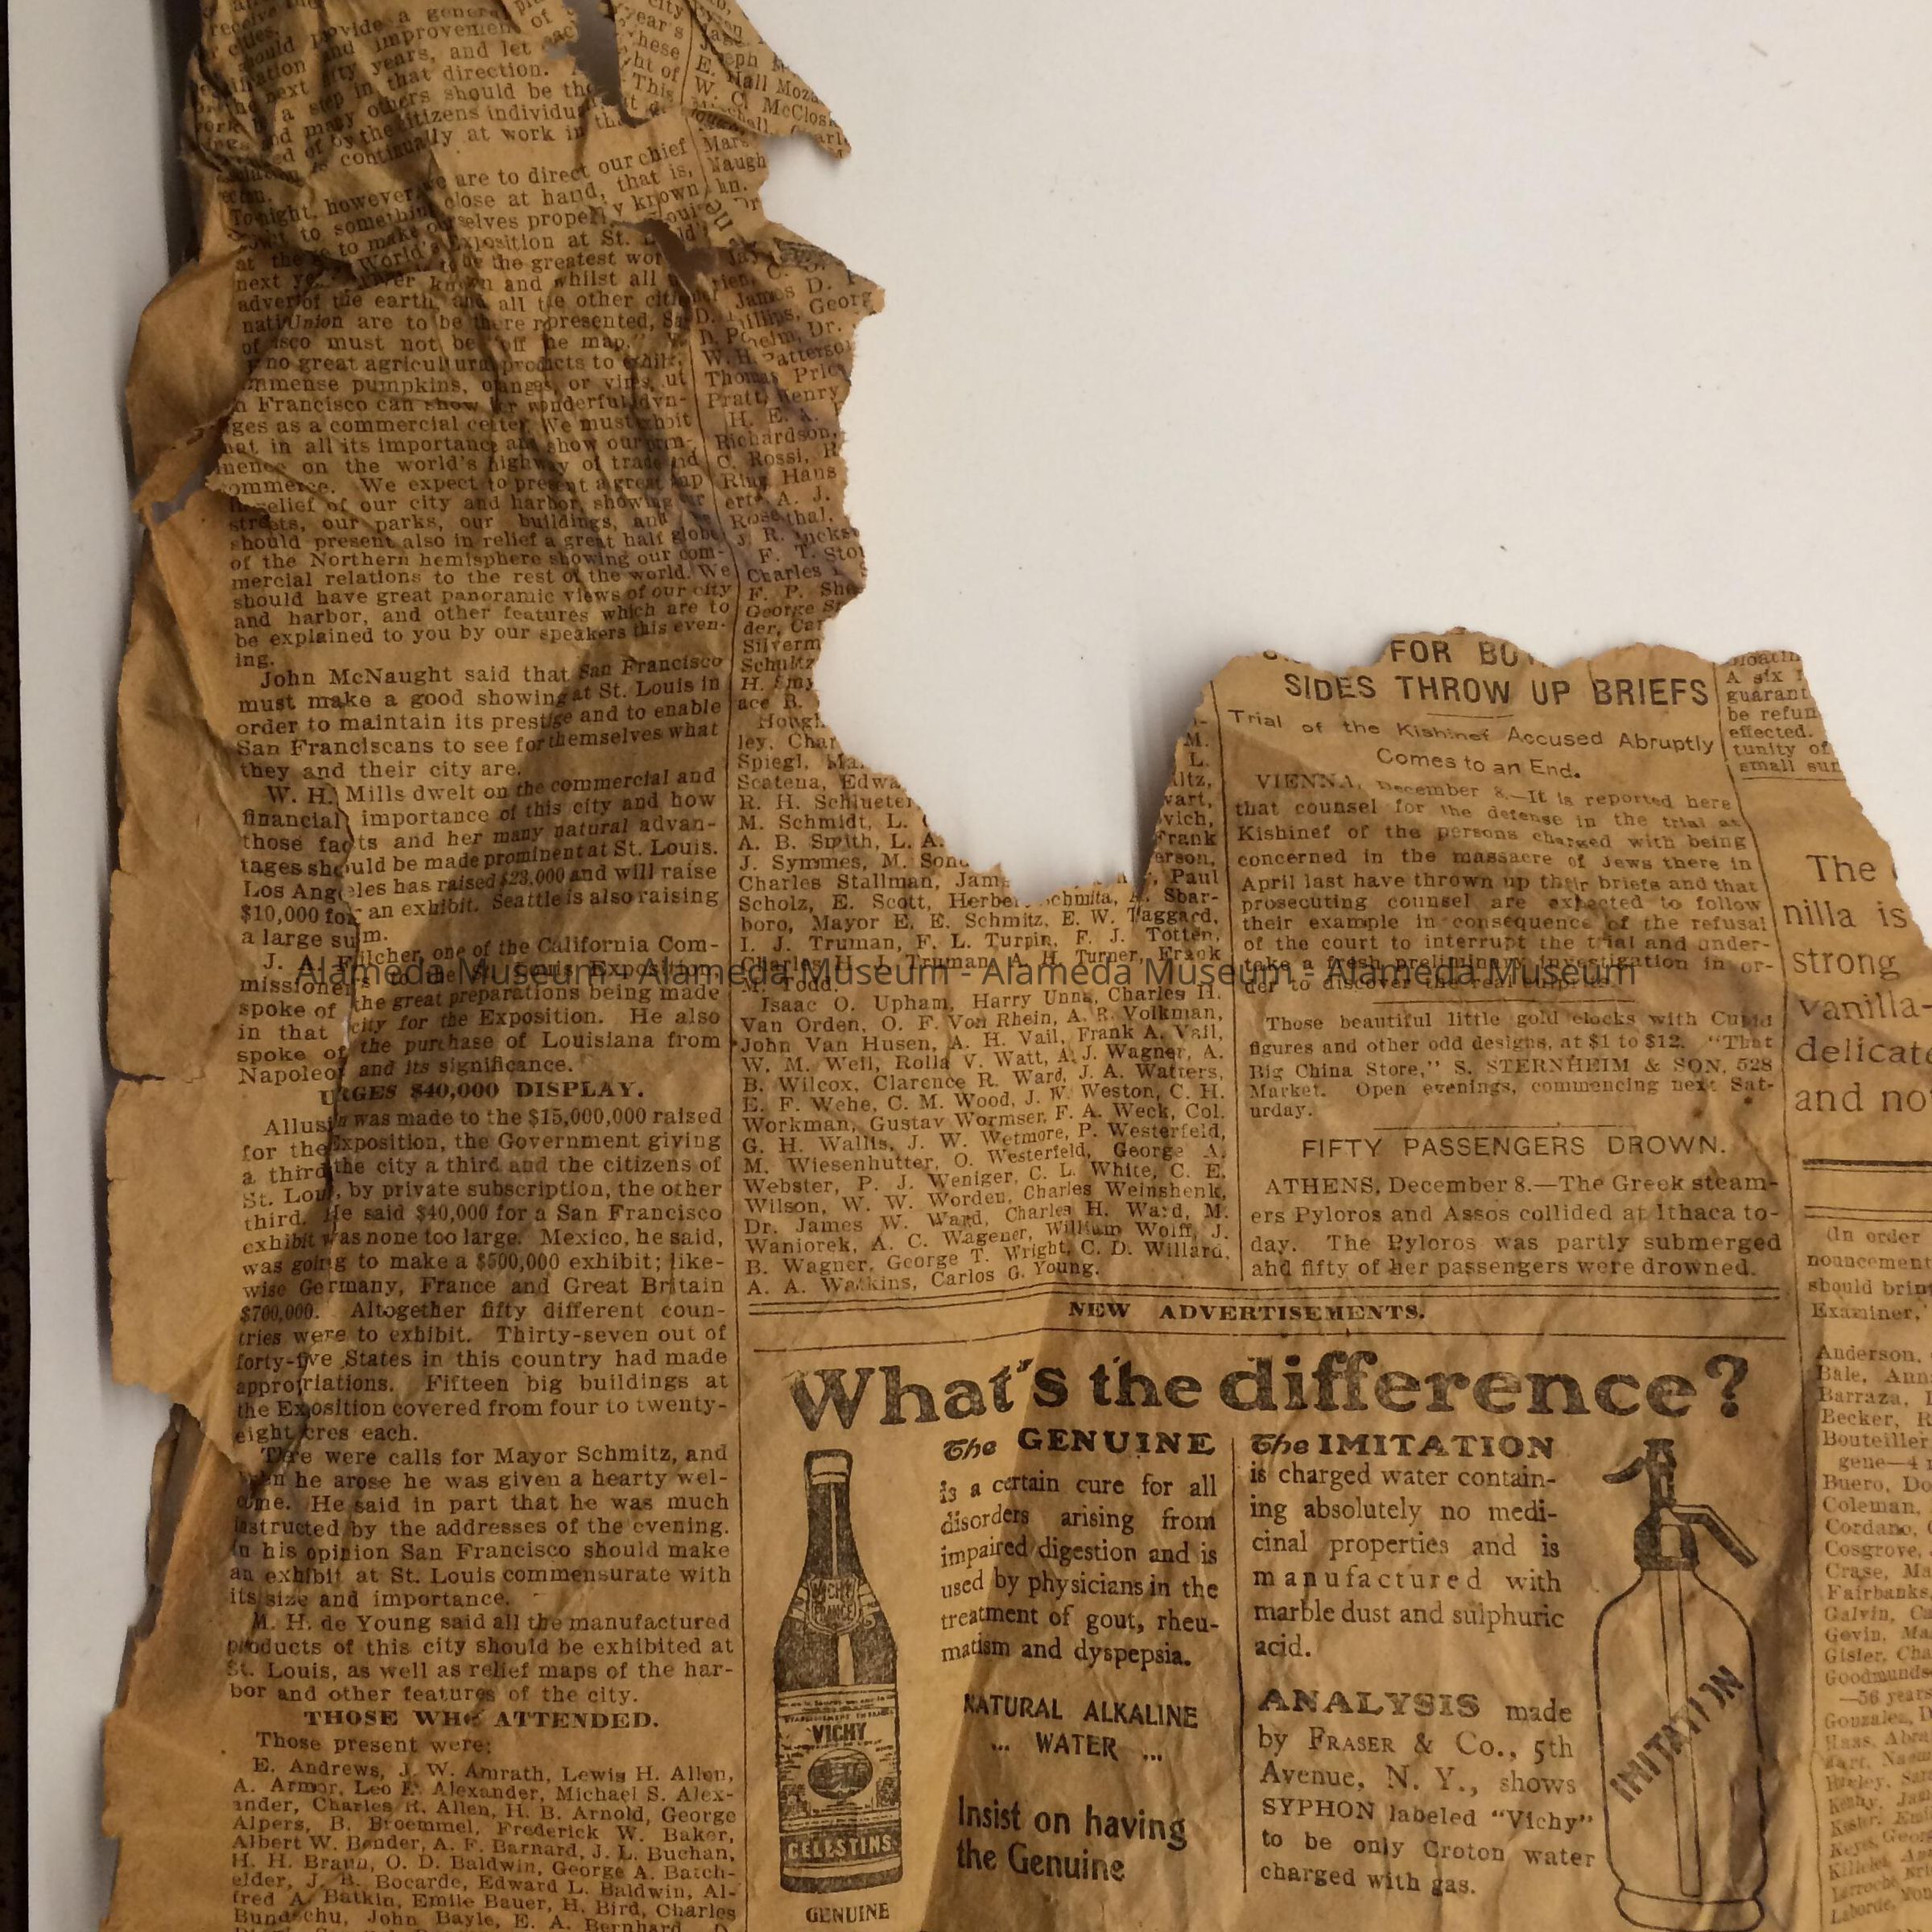 provide a general
and improvement of
years, and let
in that direction.
others should be
by the citizens individu
continually at work in
Tonight, however, are to direct our chief
to something close at hand, that is,
to make ourselves properly known
at the World's Exposition at St.
next to be the greatest
ever known and whilst all
of the earth, and all the other
Union are to be there represented,
must not be "off the map."
no great agricultural products to
immense pumpkins, oranges, or ut
Francisco can show her wonderful
ges as a commercial center. We must
in all its importance and show our
on the world's highway of trade
commerce. We expect to present a great
relief of our city and harbor, showing
streets, our parks, our buildings, and
should present also in relief a great half globe
of the Northern hemisphere showing our com-
mercial relations to the rest of the world. We
should have great panoramic views of our city
and harbor, and other features which are to
be explained to you by our speakers this even-
ing.
John McNaught said that San Francisco
must make a good showing at St. Louis in
order to maintain its prestige and to enable
San Franciscans to see for themselves what
they and their city are.
W. H. Mills dwelt on the commercial and
financial importance of this city and how
those facts and her many natural advan-
tages should be made prominent at St. Louis.
Los Angeles has raised $23,000 and will raise
$10,000 for an exhibit. Seattle is also raising
a large sum.
J. A. Filcher, one of the California Com-
missioners to the St. Louis Exposition,
spoke of the great preparations being made
in that city for the Exposition. He also
spoke of the purchase of Louisiana from
Napoleon and its significance.
URGES $40,000 DISPLAY.
Allusion was made to the $15,000,000 raised
for the Exposition, the Government giving
a third the city a third and the citizens of
St. Louis, by private subscription, the other
third. He said $40,000 for a San Francisco
exhibit was none too large. Mexico, he said,
was going to make a $500,000 exhibit; like-
wise Germany, France and Great Britain
$700,000. Altogether fifty different coun-
tries were to exhibit. Thirty-seven out of
forty-five States in this country had made
appropriations. Fifteen big buildings at
the Exposition covered from four to twenty-
eight acres each.
There were calls for Mayor Schmitz, and
when he arose he was given a hearty wel-
come. He said in part that he was much
instructed by the addresses of the evening.
In his opinion San Francisco should make
an exhibit at St. Louis commensurate with
its size and importance.
M. H. de Young said all the manufactured
products of this city should be exhibited at
St. Louis, as well as relief maps of the har-
bor and other features of the city.
THOSE WHO ATTENDED.
Those present were:
E. Andrews, J. W. Amrath, Lewis H. Allen,
A. Armor, Leo E. Alexander, Michael S. Alex-
ander, Charles R. Allen, H. B. Arnold, George
Alpers, B. Broemmel, Frederick W. Baker,
Albert W. Bender, A. F. Barnard, J. L. Buchan,
H. H. Braun, O. D. Baldwin, George A. Batch-
elder, J. B. Bocarde, Edward L. Baldwin, Al-
fred A. Batkin, Emile Bauer, H. Bird, Charles
Bundschu, John Bayle, E. A. Bernhard, D.
city
ear's
These
ht of
This
E. Hall Moza
W. C. McClosk
Mars
Naugh
James D.
D. Phillips, Georg
Dr.
W. H. Patterson
Thomas Price
Pratt, Henry
H. E. A.
Richardson,
C. Rossi, R
Ring Hans
ert, A. J.
Rosenthal,
J. R.
F. T. Sto
Charles
F. P. She
George St
der, Car
Silverm
Schultz
H.
ace B.
Hough
ley, Char
Spiegl, Ma
Scatena, Edwa
R. H. Schlueter
M. Schmidt, L.
A. B. Smith, L. A.
J. Symmes, M. Sono
Charles Stallman, Jam , Paul
Scholz, E. Scott, Herber Schmita, A. Sbar-
boro, Mayor E. E. Schmitz, E. W. Taggard,
I. J. Truman, F. L. Turpin, F. J. Totten,
Charles H. J. Truman, A. H. Turner, Frank
M. Todd.
Isaac O. Upham, Harry Unna, Charles H.
Van Orden, O. F. Von Rhein, A. R. Volkman,
John Van Husen, A. H. Vail, Frank A. Vail,
W. M. Weil, Rolla V. Watt, A. J. Wagner, A.
B. Wilcox, Clarence R. Ward, J. A. Watters,
E. F. Wehe, C. M. Wood, J. W. Weston, C. H.
Workman, Gustav Wormser, F. A. Weck, Col.
G. H. Wallis, J. W. Wetmore, P. Westerfeld,
M. Wiesenhutter, O. Westerfeld, George A.
Webster, P. J. Weniger, C. L. White, C. E.
Wilson, W. W. Worden, Charles Weinshenk,
Dr. James W. Ward, Charles H. Ward, M.
Waniorek, A. C. Wagener, William Wolff, J.
B. Wagner, George T. Wright, C. D. Willard,
A. A. Watkins, Carlos G. Young.
M.
L.
ltz,
wart,
vich,
Frank
erson,
FOR BO
SIDES THROW UP BRIEFS
Trial of the Kishinef Accused Abruptly
Comes to an End.
VIENNA, December 8.—It is reported here
that counsel for the defense in the trial at
Kishinef of the persons charged with being
concerned in the massacre of Jews there in
April last have thrown up their briefs and that
prosecuting counsel are expected to follow
their example in consequence of the refusal
of the court to interrupt the trial and under-
take a fresh preliminary investigation in or-
der to discover the real culprits.
Those beautiful little gold clocks with Cupid
figures and other odd designs, at $1 to $12. "That
Big China Store," S. STERNHEIM & SON, 528
Market. Open evenings, commencing next Sat-
urday.
FIFTY PASSENGERS DROWN.
ATHENS, December 8.—The Greek steam-
ers Pyloros and Assos collided at Ithaca to-
day. The Pyloros was partly submerged
and fifty of her passengers were drowned.
A six
guarant
be refun
effected.
tunity of
small sum
The
nilla is
strong
vanilla-
delicate
and no
(In order
nouncement
should bring
Examiner,
Anderson,
Bale, Ann
Barraza,
Becker, R
Bouteiller
gene—4
Buero, Do
Coleman,
Cordano,
Cosgrove,
Crase, Ma
Fairbanks,
Galvin, Ca
Gevin, Ma
Gisler, Cha
Goodmunds
—56 years
Gonzalez, D
Haas, Abra
Hart, Naom
Keyes, Geor
Laborde,
NEW ADVERTISEMENTS.
What's the difference?
The GENUINE
is a certain cure for all
disorders arising from
impaired digestion and is
used by physicians in the
treatment of gout, rheu-
matism and dyspepsia.
NATURAL ALKALINE
... WATER ...
Insist on having
the Genuine
VICHY
FRANCE
VICHY
CELESTINS
GENUINE
The IMITATION
is charged water contain-
ing absolutely no medi-
cinal properties and is
manufactured with
marble dust and sulphuric
acid.
ANALYSIS made
by FRASER & Co., 5th
Avenue, N. Y., shows
SYPHON labeled "Vichy"
to be only Croton water
charged with gas.
IMITATION
Alameda Museum - Alameda Museum - Alameda Museum - Alameda Museum